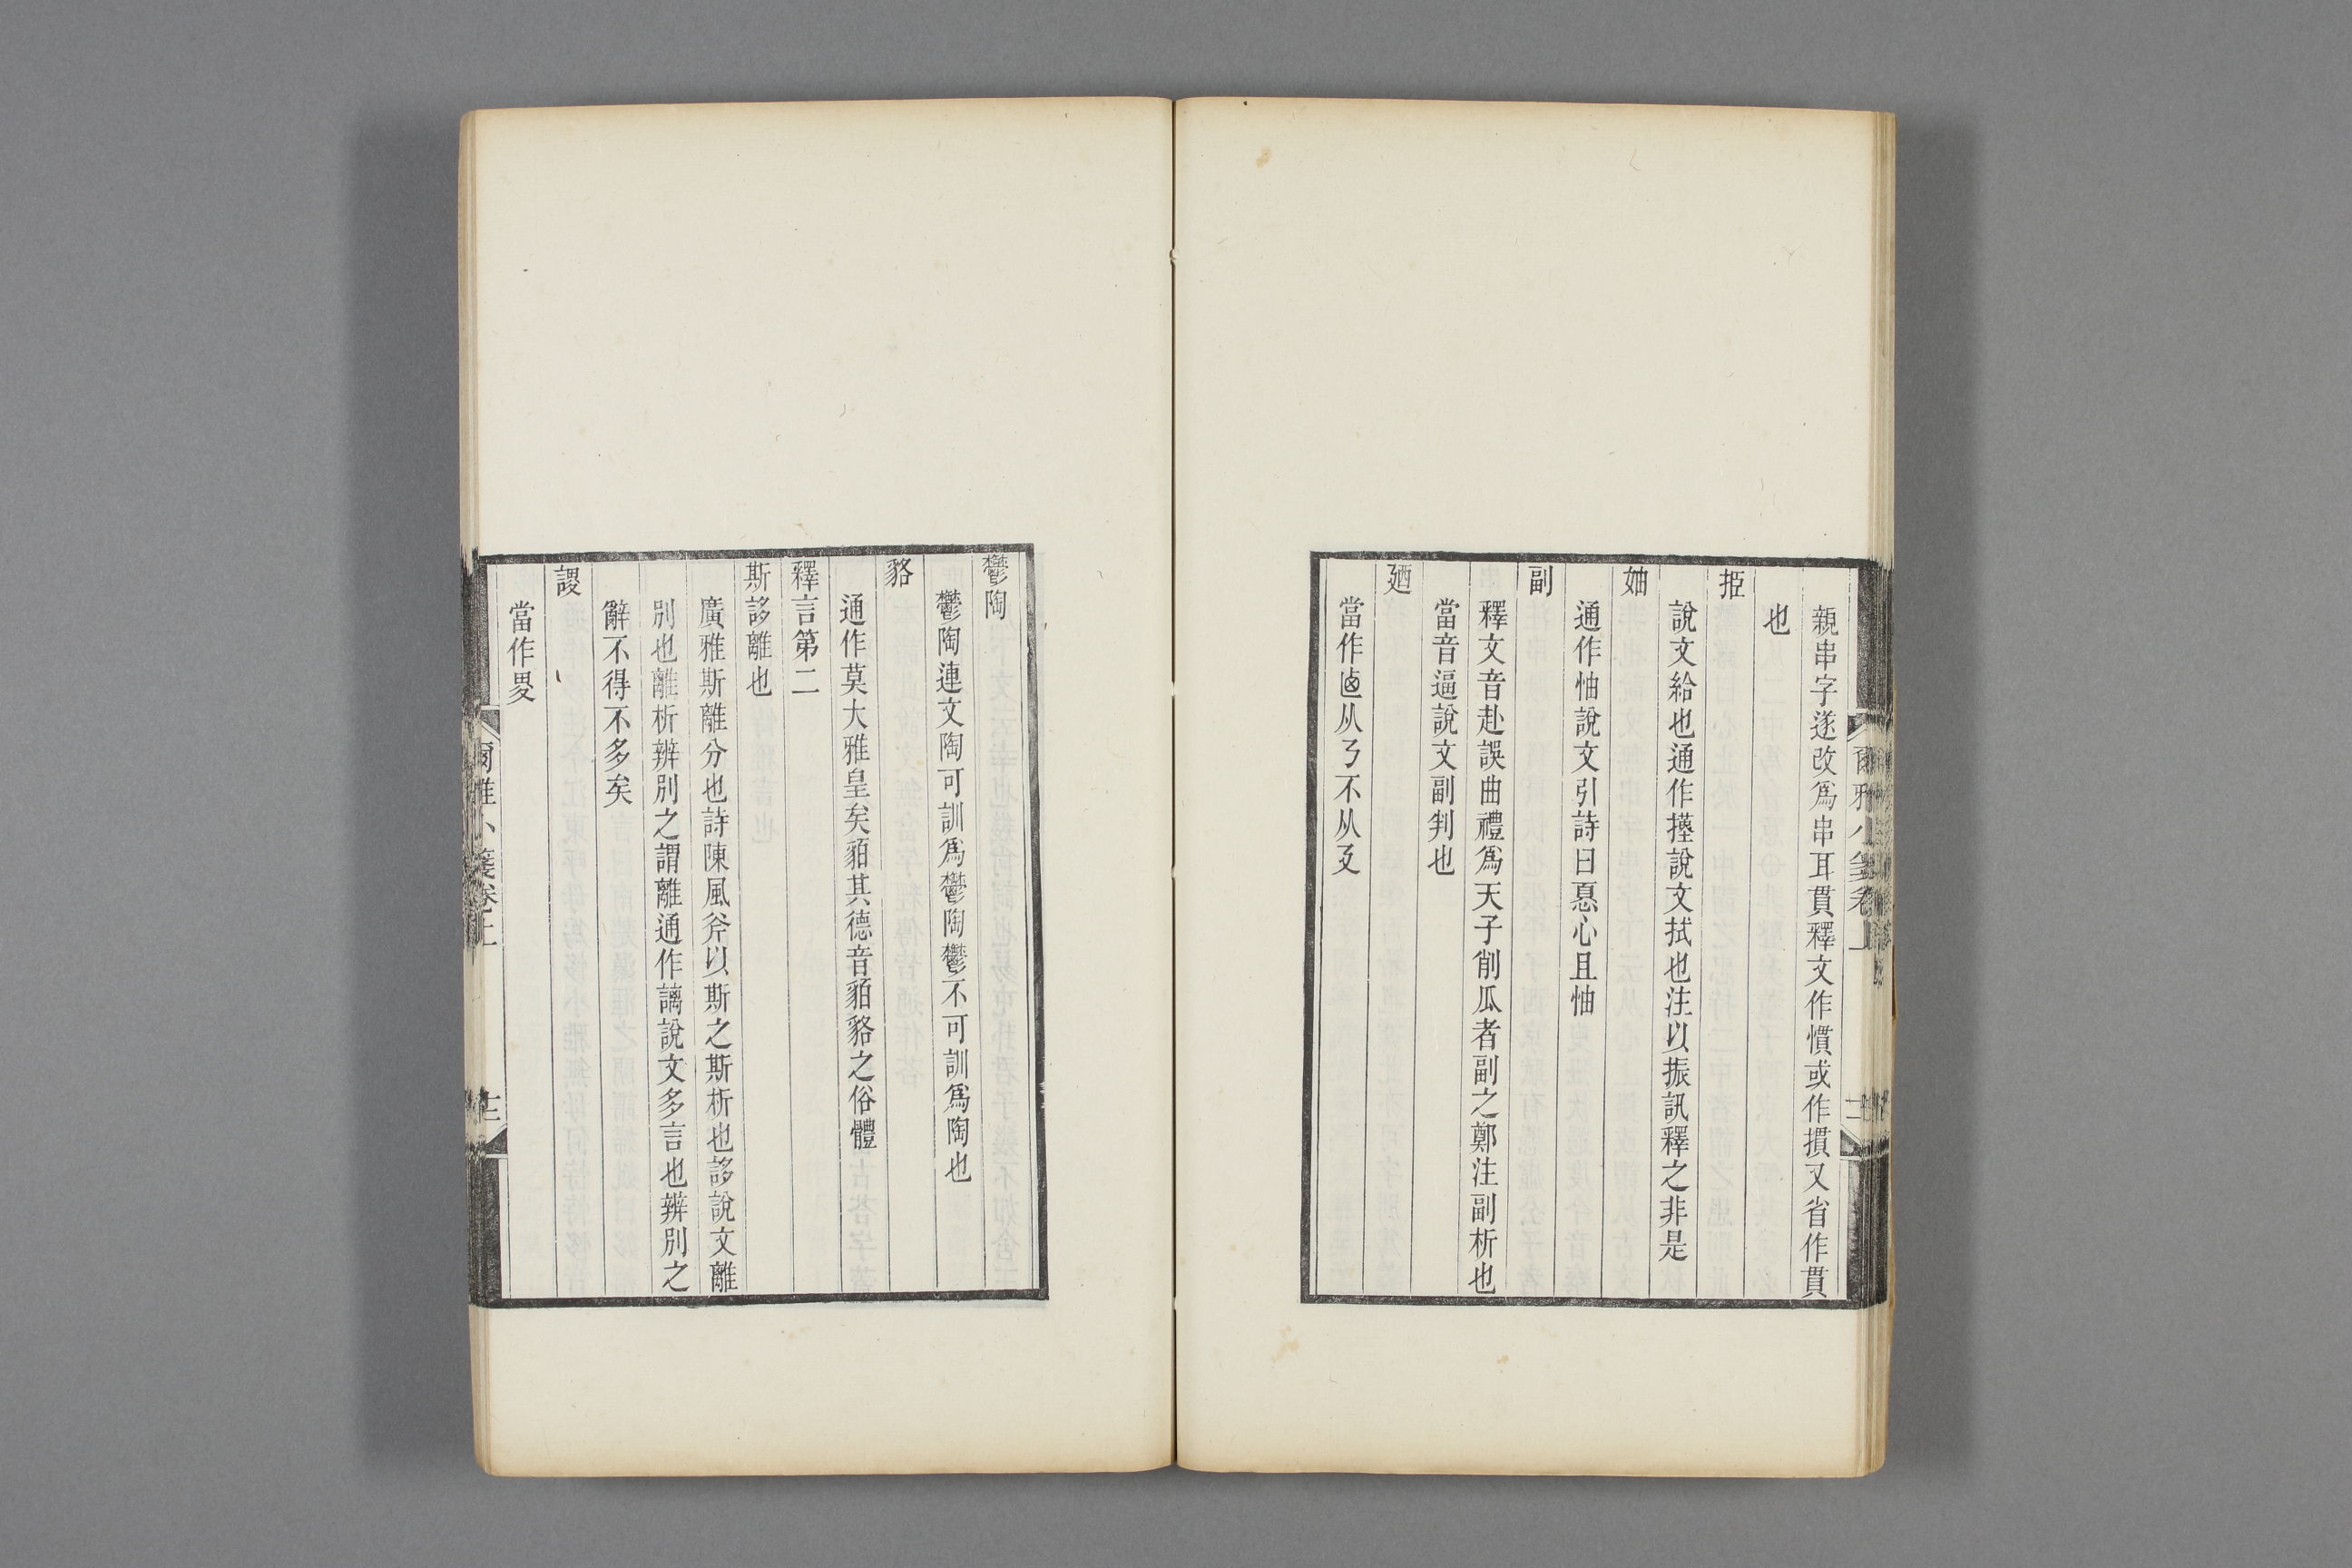 親串字遂改爲串耳貫釋文作慣或作摜又省作貫
也
挋
說文給也通作㨷說文拭也注以振訊釋之非是
妯
通作怞說文引詩曰憂心且怞
副
釋文音赴誤曲禮爲天子削瓜者副之鄭注副析也
當音逼說文副判也
廼
當作卥从乃不从廴
鬱陶
鬱陶連文陶可訓爲鬱陶鬱不可訓爲陶也
貉
通作莫大雅皇矣貊其德音貊貉之俗體
釋言第二
斯誃離也
廣雅斯離分也詩陳風斧以斯之斯析也誃說文離
別也離析辨別之謂離通作謧說文多言也辨別之
辭不得不多矣
謖
當作畟
爾雅小箋卷上